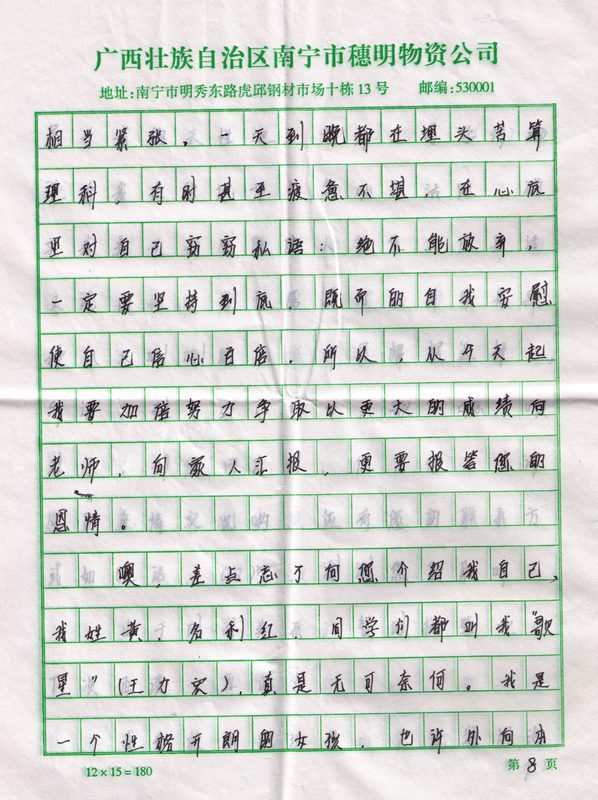 广西壮族自治区南宁市穗明物资公司
地址:南宁市明秀东路虎邱钢材市场十栋13号 邮编:530001
相当紧张，一天到晚都在埋头苦算
理科，有时甚至疲惫不堪，在心底
里对自己窃窃私语：绝不能放弃，
一定要坚持到底，既而的自我安慰
使自己信心百倍，所以，从今天起
我要加倍努力争取以更大的成绩向
老师，向家人汇报，更要报答您的
恩情。
噢，差点忘了向您介绍我自己，
我姓黄，名利红，同学们都叫我"歌
星"（王力宏），真是无可奈何。我是
一个性格开朗的女孩，也许外向本
12×15=180
第8页